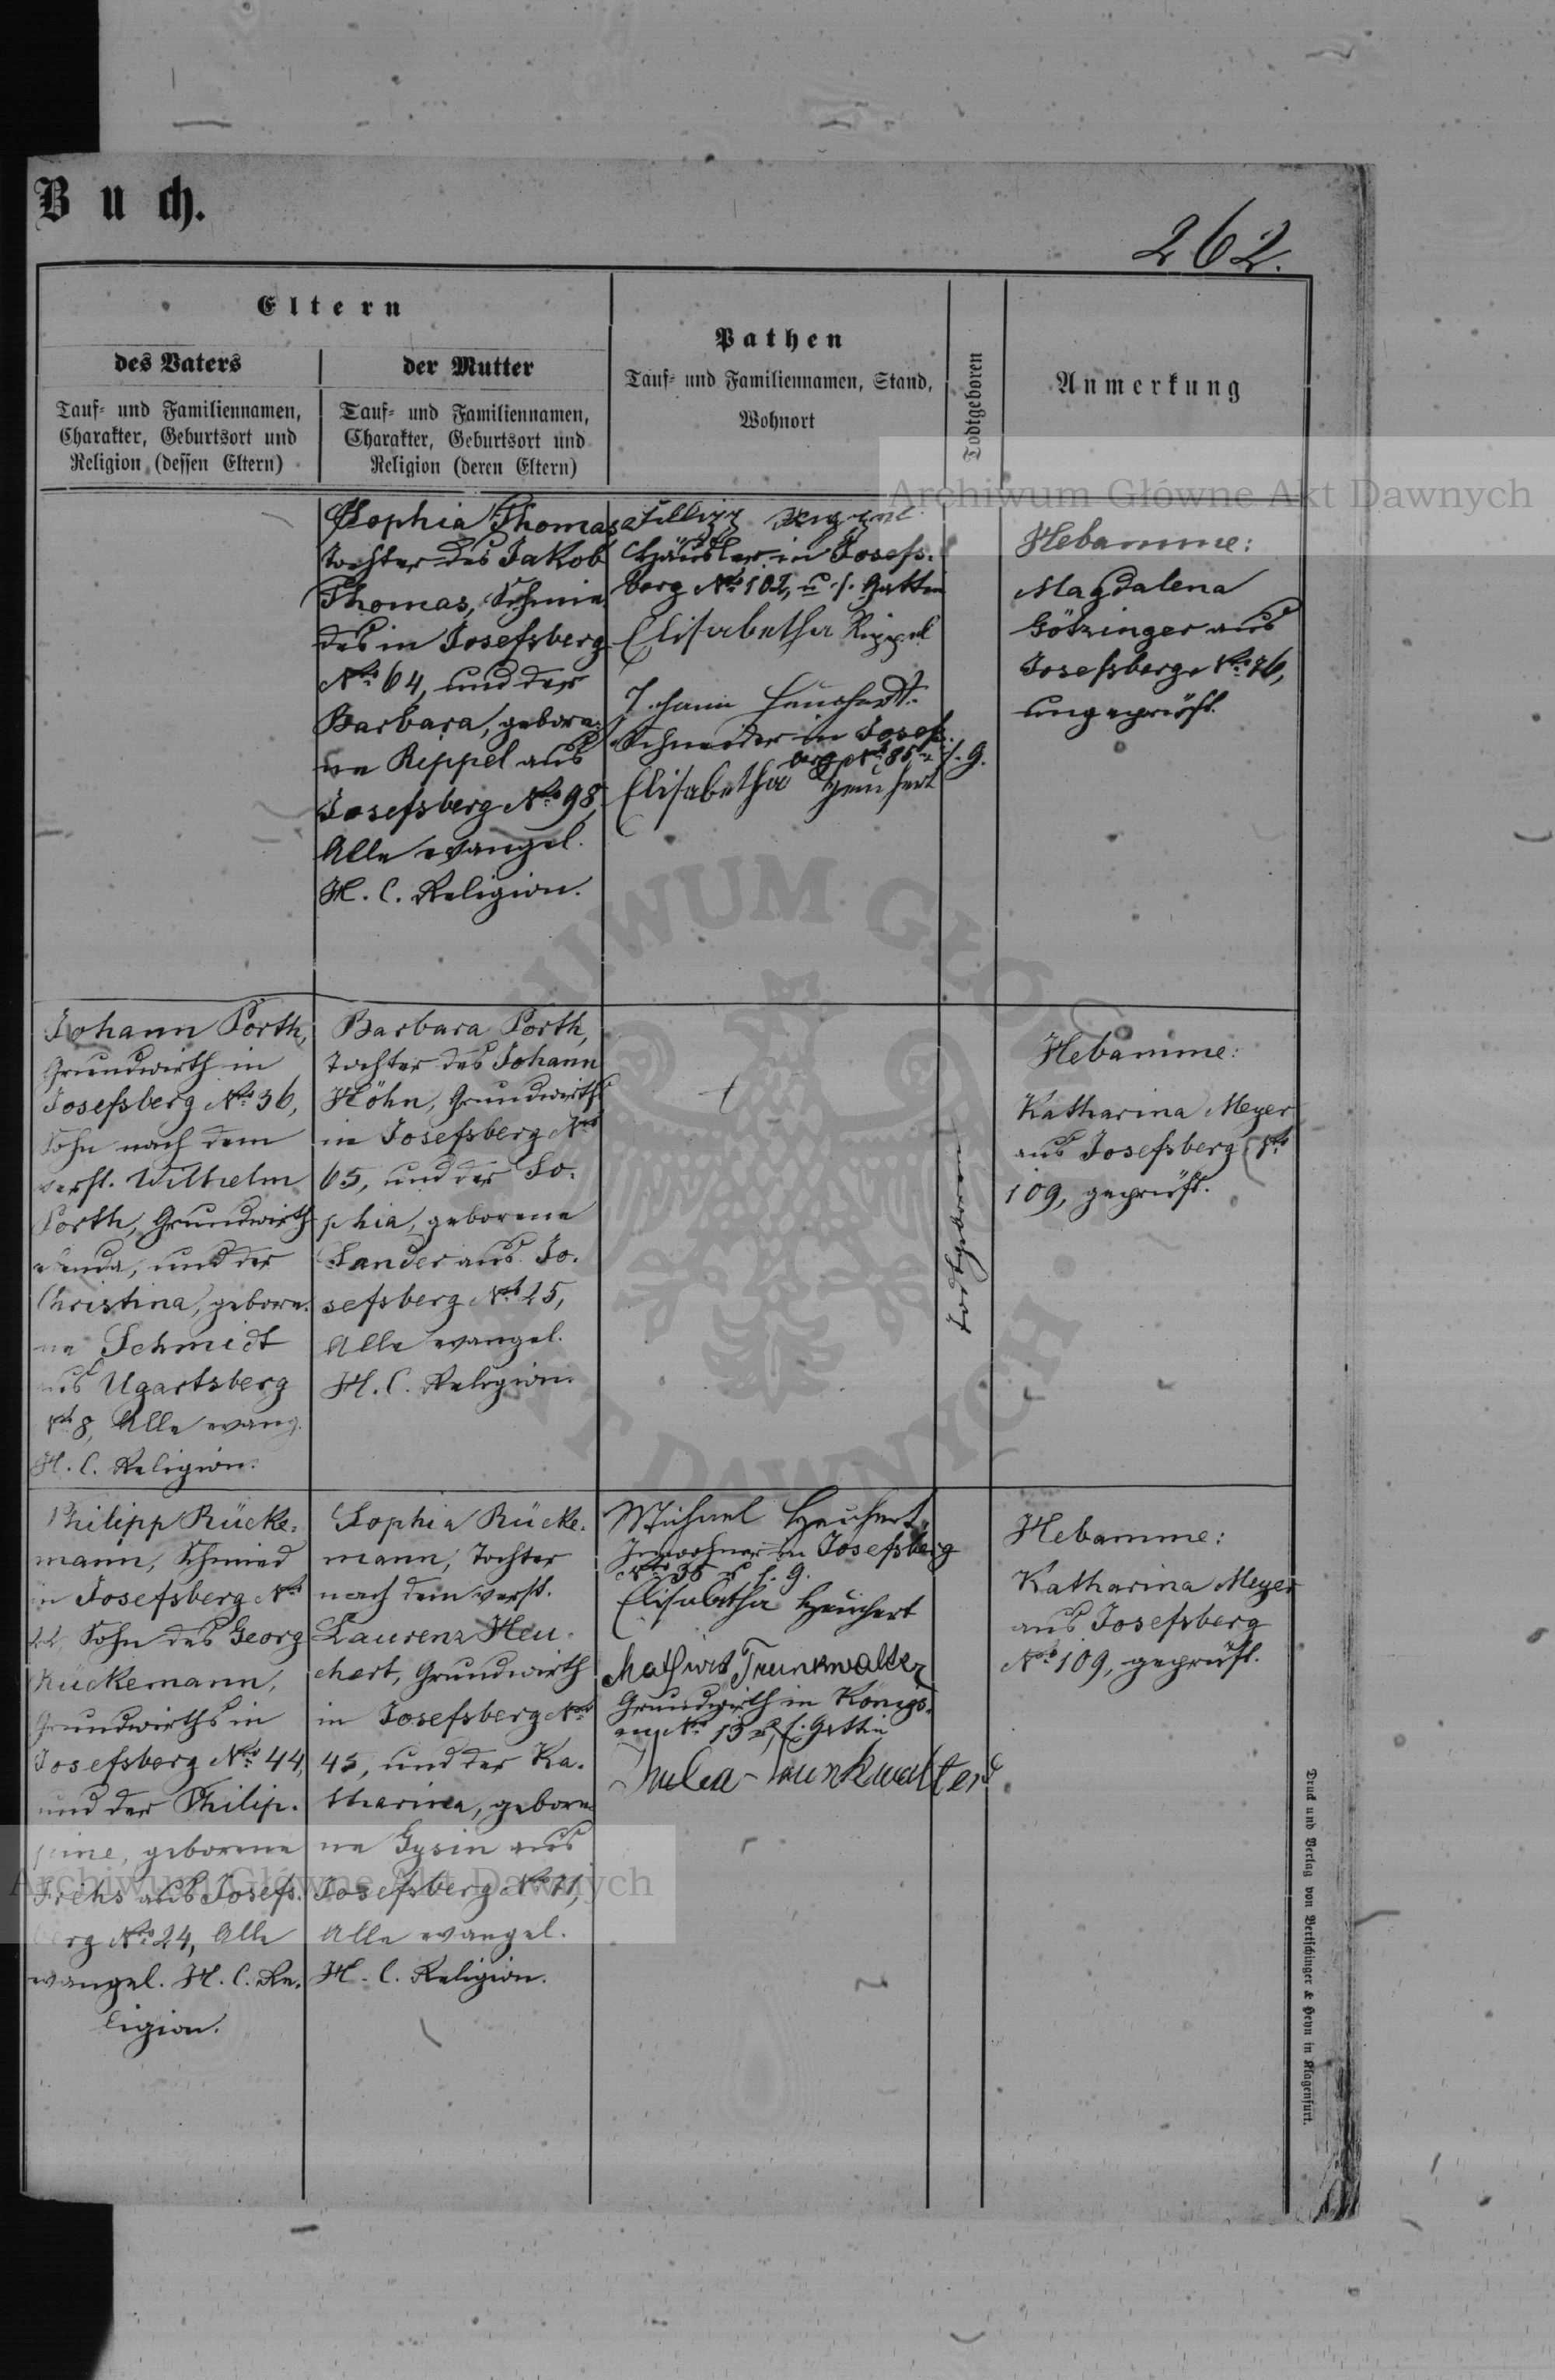 Buch.
262.
Eltern
des Vaters
Tauf- und Familiennamen,
Charakter, Geburtsort und
Religion (dessen Eltern)
der Mutter
Tauf- und Familiennamen,
Charakter, Geburtsort und
Religion (deren Eltern)
Pathen
Tauf- und Familiennamen, Stand,
Wohnort
Todtgeboren
Anmerkung
Archiwum Główne Akt Dawnych
Sophia Thomas
Tochter des Jakob
Thomas, Schmie-
des in Josefsberg
No 64, und der
Barbara, gebore-
ne Reppel aus
Josefsberg No 98,
Alle evangel.
H. C. Religion.
Häusler in Josefs-
berg No 102, u. s. Gattin
Elisabetha Rippel
Johann Heuchert
Schneider in Josefs-
berg No 85 u. s. G.
Elisabetha Heuchert
Hebamme:
Magdalena
Götzinger aus
Josefsberg No 76,
ungeprüft.
Johann Porth,
Grundwirth in
Josefsberg No 36,
Sohn nach dem
verst. Wilhelm
Porth, Grundwirth
ebenda, und der
Christina, gebore-
ne Schmidt
aus Ugartsberg
No 8, Alle evang.
H. C. Religion.
Barbara Porth,
Tochter des Johann
Höhn, Grundwirths
in Josefsberg No
65, und der So-
phia, geborene
Sander aus Jo-
sefsberg No 25,
Alle evangel.
H. C. Religion.
todtgeboren
Hebamme:
Katharina Meyer
aus Josefsberg No
109, geprüft.
Philipp Rücke-
mann, Schmied
in Josefsberg No
22, Sohn des Georg
Rückemann,
Grundwirths in
Josefsberg No 44,
und der Philip-
pine, geborene
Frehs aus Josefs-
berg No 24, Alle
evangel. H. C. Re-
ligion.
Sophia Rücke-
mann, Tochter
nach dem verst.
Laurenz Heu-
chert, Grundwirth
in Josefsberg No
45, und der Ka-
tharina, gebore-
ne Gysin aus
Josefsberg No 71,
Alle evangel.
H. C. Religion.
Michael Heuchert,
Inwohner in Josefsberg
No 35 u. s. G.
Elisabetha Heuchert
Mathias Trunkwalter
Grundwirth in Königs-
au No 13 u. s. Gattin
Trunkwalter
Hebamme:
Katharina Meyer
aus Josefsberg
No 109, geprüft.
Archiwum Główne Akt Dawnych
ARCHIWUM GŁÓWNE AKT DAWNYCH
Druck und Verlag von Bertschinger & Heyn in Klagenfurt.